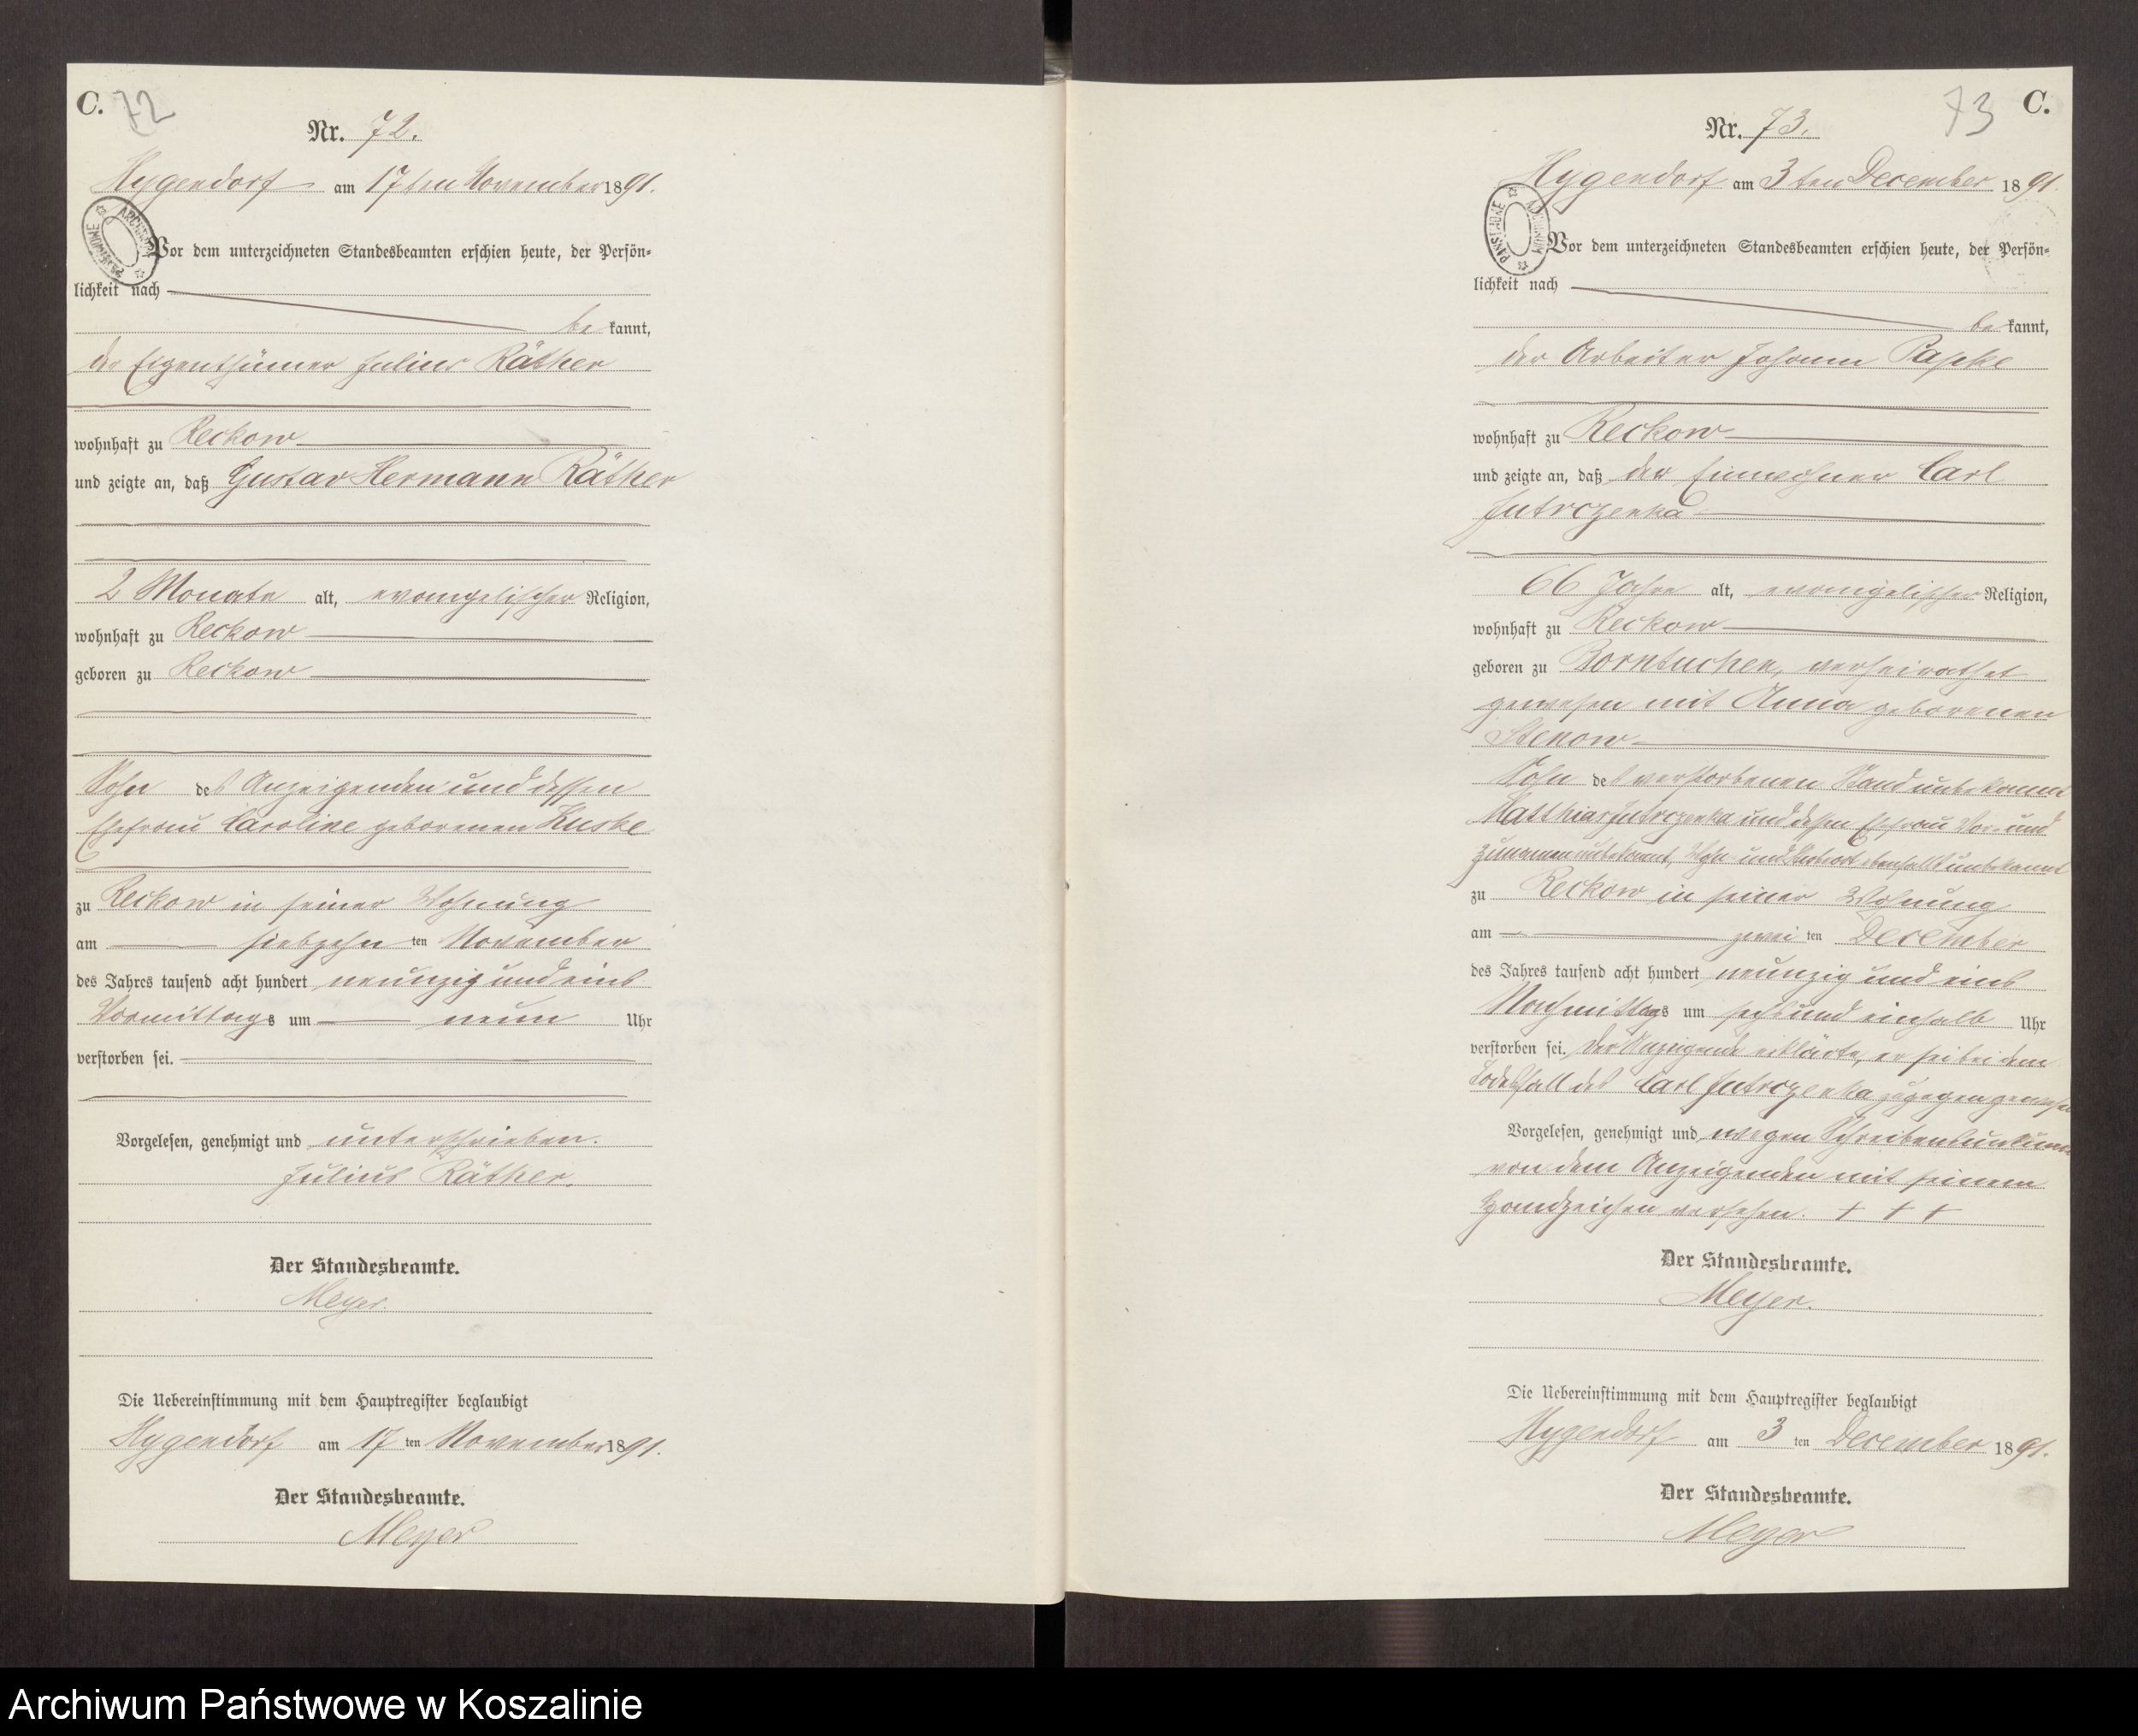 C. 72
Nr. 72.
Hygendorf am 17ten November 1891.
Vor dem unterzeichneten Standesbeamten erschien heute, der Persön-
lichkeit nach
bekannt,
der Eigenthümer Julius Räther
wohnhaft zu Reckow
und zeigte an, daß Gustav Hermann Räther
2 Monate alt, evangelischer Religion,
wohnhaft zu Reckow
geboren zu Reckow
Sohn des Anzeigenden und dessen
Ehefrau Caroline geborenen Kuske
zu Reckow in seiner Wohnung
am siebzehnten November
des Jahres tausend acht hundert neunzig und eins
Vormittags um neun Uhr
verstorben sei.
Vorgelesen, genehmigt und unterschrieben.
Julius Räther.
Der Standesbeamte.
Meyer.
Die Uebereinstimmung mit dem Hauptregister beglaubigt
Hygendorf am 17ten November 1891.
Der Standesbeamte.
Meyer
73 C.
Nr. 73.
Hygendorf am 3ten December 1891.
Vor dem unterzeichneten Standesbeamten erschien heute, der Persön-
lichkeit nach
bekannt,
der Arbeiter Johann Papke
wohnhaft zu Reckow
und zeigte an, daß der Einwohner Carl
Jutrczenka
66 Jahre alt, evangelischer Religion,
wohnhaft zu Reckow
geboren zu Borntuchen, verheirathet
gewesen mit Anna geborenen
Stenow
Sohn des verstorbenen Stand unbekannt
Matthias Jutrczenka und dessen Ehefrau Vor- und
Zunamen unbekannt, Wohn- und ebenfalls unbekannt
zu Reckow in seiner Wohnung
am zweiten December
des Jahres tausend acht hundert neunzig und eins
Nachmittags um sechs und einhalb Uhr
verstorben sei. Der Anzeigende erklärte, er sei bei dem
Todesfall des Carl Jutrczenka zugegen gewesen
Vorgelesen, genehmigt und wegen Schreibensunkunde
von dem Anzeigenden mit seinem
Handzeichen versehen. + + +
Der Standesbeamte.
Meyer.
Die Uebereinstimmung mit dem Hauptregister beglaubigt
Hygendorf am 3ten December 1891.
Der Standesbeamte.
Meyer
Archiwum Państwowe w Koszalinie